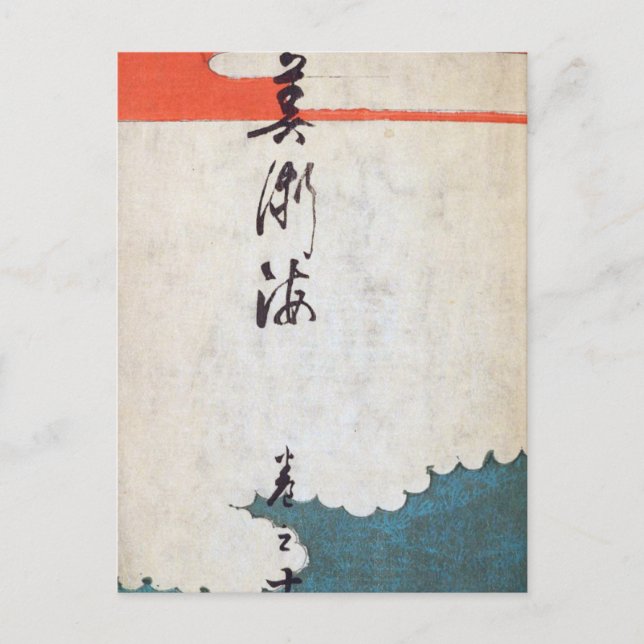 美術海
巻之十